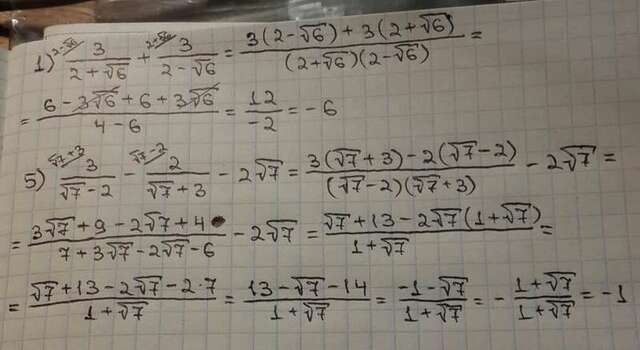 1) 2-√6 3/(2+√6) + 2+√6 3/(2-√6) = (3(2-√6)+3(2+√6))/((2+√6)(2-√6)) =
= (6-3√6+6+3√6)/(4-6) = 12/-2 = -6
5) √7+3 3/(√7-2) - √7-2 2/(√7+3) - 2√7 = (3(√7+3)-2(√7-2))/((√7-2)(√7+3)) - 2√7 =
= (3√7+9-2√7+4)/(7+3√7-2√7-6) - 2√7 = (√7+13-2√7(1+√7))/(1+√7) =
= (√7+13-2√7-2·7)/(1+√7) = (13-√7-14)/(1+√7) = (-1-√7)/(1+√7) = - (1+√7)/(1+√7) = -1